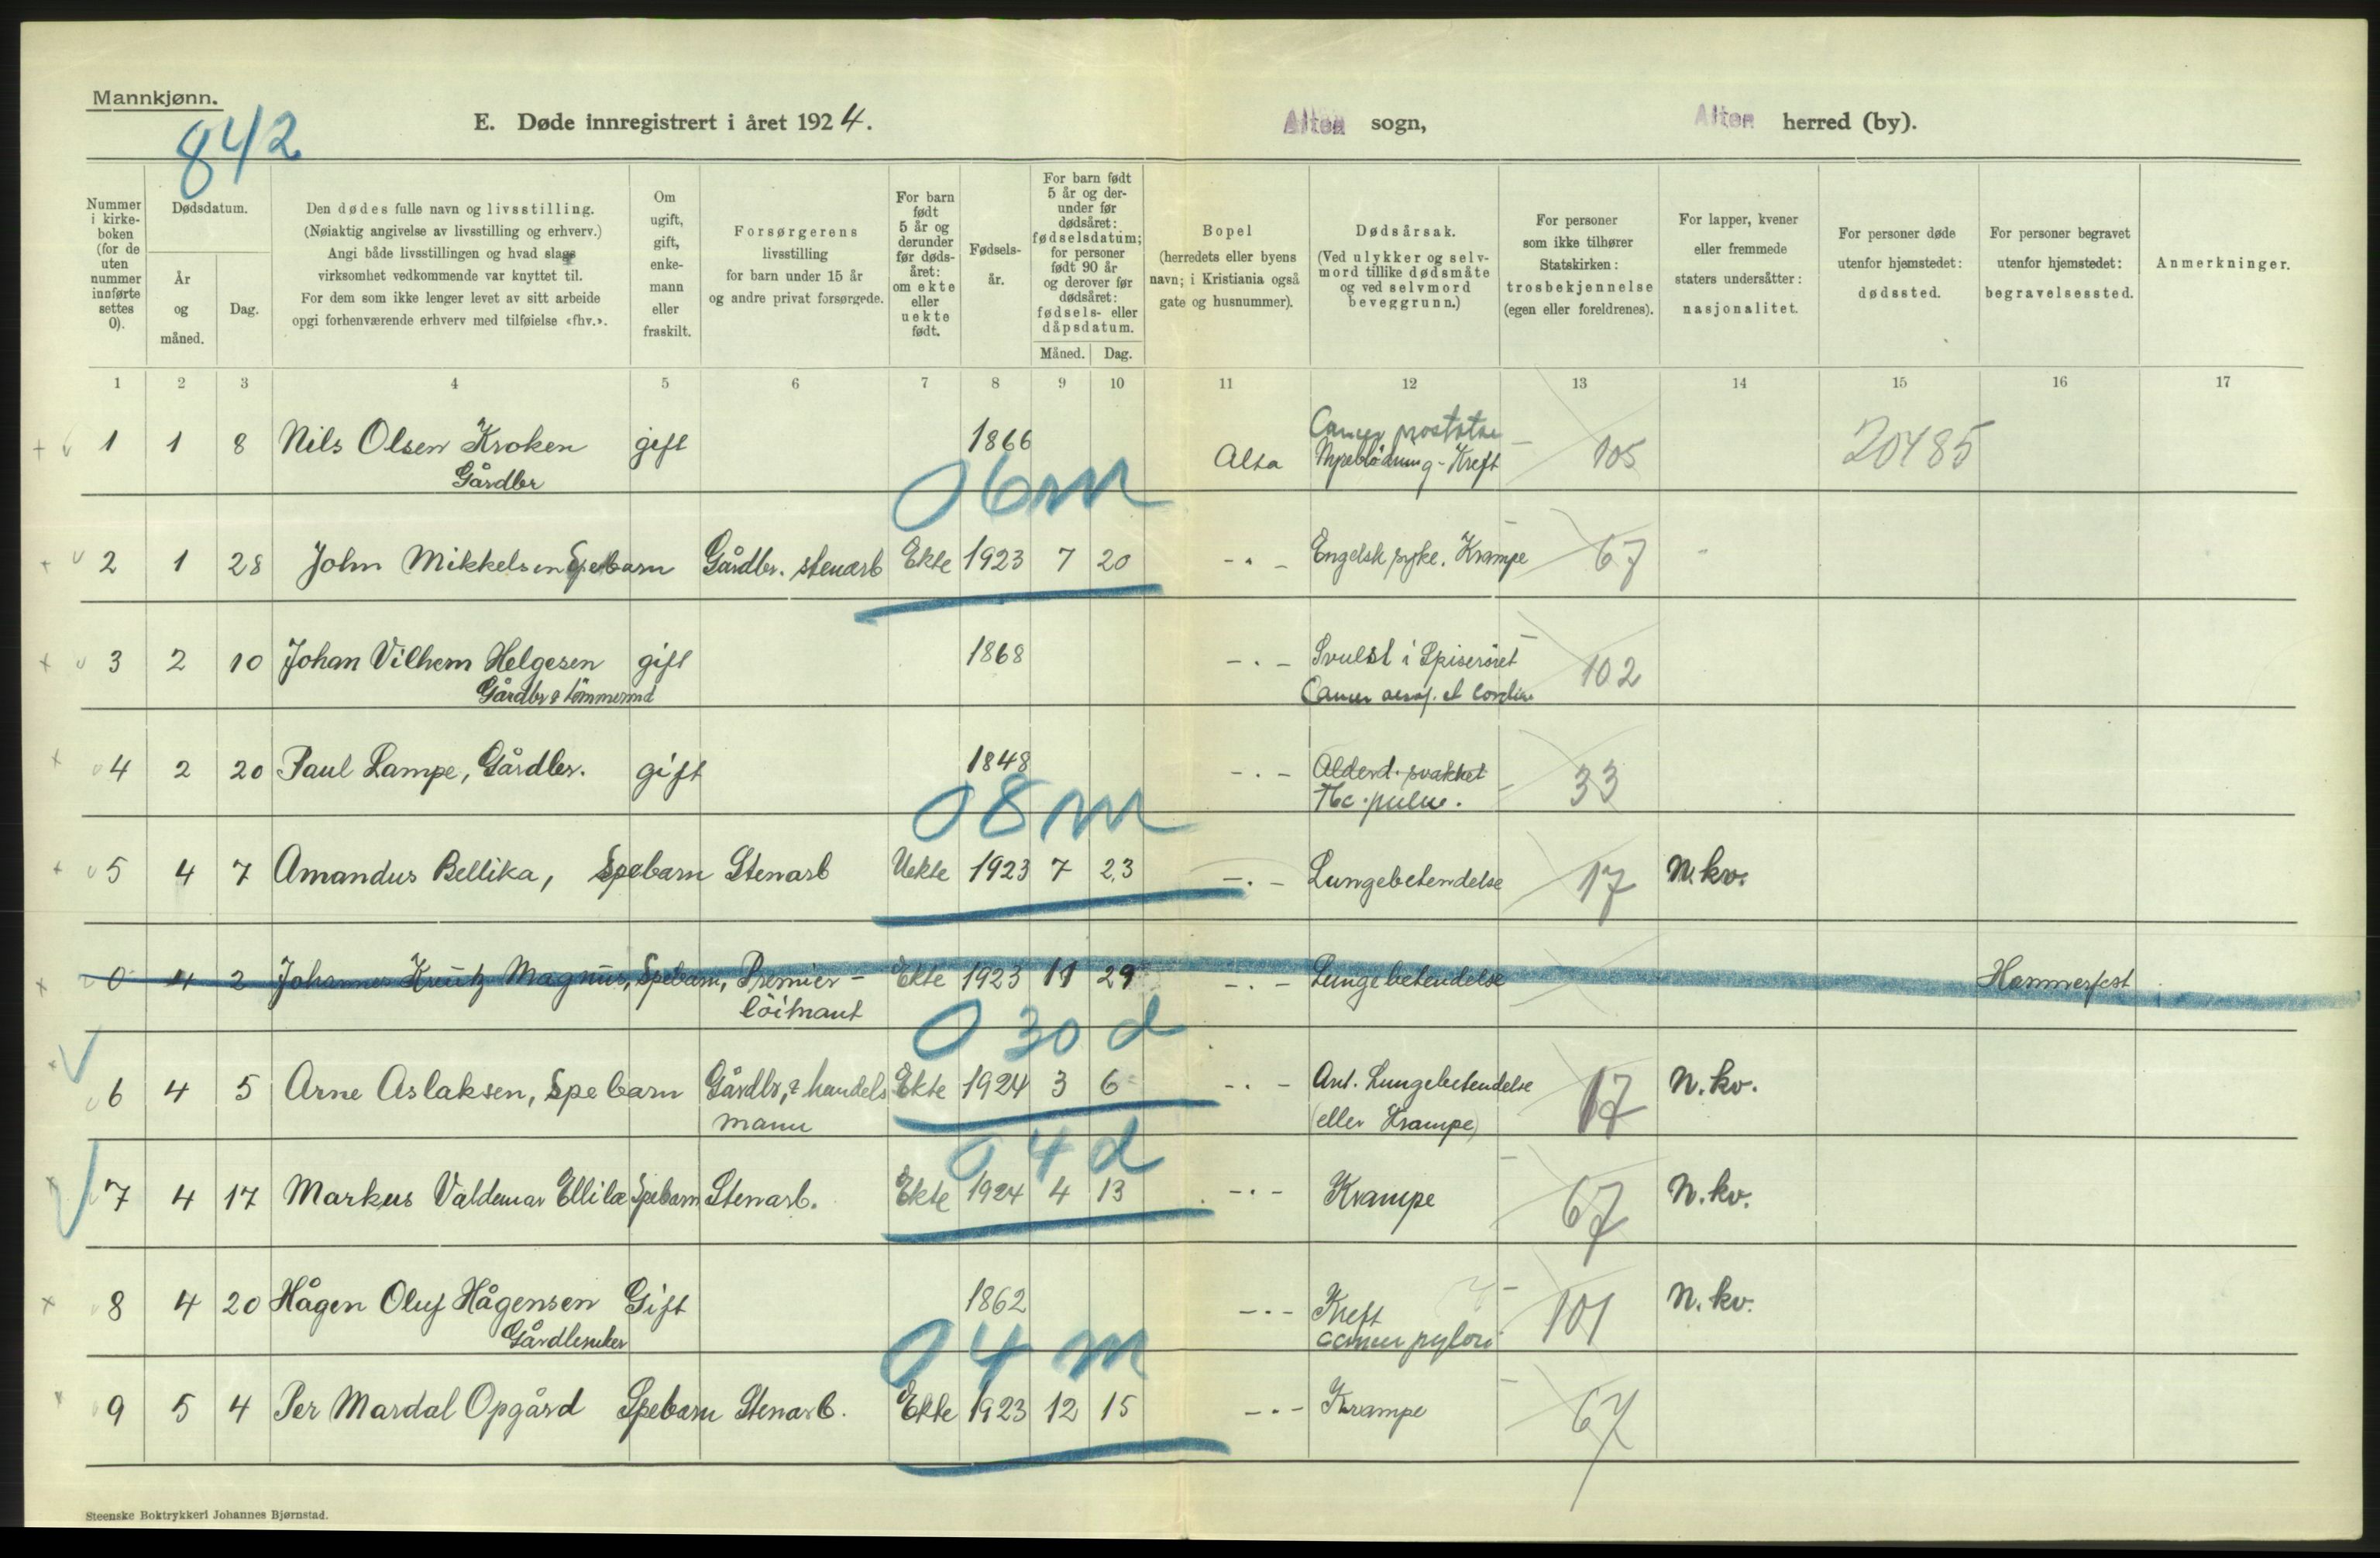 Mannkjønn.
842
E. Døde innregistrert i året 1924.
Alten sogn,
Alten herred (by).
Nummer i kirke- boken (for de uten nummer innførte settes 0).
Dødsdatum.
År og måned.
Dag.
Den dødes fulle navn og livsstilling.
(Nøiaktig angivelse av livsstilling og erhverv.)
Angi både livsstillingen og hvad slags
virksomhet vedkommende var knyttet til.
For dem som ikke lenger levet av sitt arbeide
opgi forhenværende erhverv med tilføielse «fhv.».
Om ugift, gift, enke- mann eller fraskilt.
Forsørgerens
livsstilling
for barn under 15 år
og andre privat forsørgede.
For barn født 5 år og derunder før døds- året: om ekte eller uekte født.
Fødsels- år.
For barn født 5 år og der- under før dødsåret: fødselsdatum; for personer født 90 år og derover før dødsåret: fødsels- eller dåpsdatum.
Måned. Dag.
Bopel
(herredets eller byens
navn; i Kristiania også
gate og husnummer).
Dødsårsak.
(Ved ulykker og selv-
mord tillike dødsmåte
og ved selvmord
beveggrunn.)
For personer
som ikke tilhører
Statskirken:
trosbekjennelse
(egen eller foreldrenes).
For lapper, kvener
eller fremmede
staters undersåtter:
nasjonalitet.
For personer døde
utenfor hjemstedet:
dødssted.
For personer begravet
utenfor hjemstedet:
begravelsessted.
Anmerkninger.
1 2 3 4 5 6 7 8 9 10 11 12 13 14 15 16 17
Cancer prostatae
1 1 8 Nils Olsen Kroken gift 1866 Alta - Kreft 105 20485
Gårdbr
06m
2 1 28 John Mikkelsen Spebarn Gårdbr. stenarb Ekte 1923 7 20 - . - Engelsk syke. Krampe 67
3 2 10 Johan Vilhem Helgesen gift 1868 - . - Svulst i Spiserøret 102
Gårdbr & tömmermd Cancer
4 2 20 Paul Lampe, Gårdbr. gift 1848 - . - Alderd. svakhet 33
Tbc. pulm.
08m
5 4 7 Amandus Bellika, Spebarn Stenarb Uekte 1923 7 23 - . - Lungebetendelse 17 N. kv.
0 4 2 Johannes Kreutz Magnus, Spebarn, Premier- Ekte 1923 11 29 - . - Lungebetendelse Hammerfest
löitnant
0 30 d
6 4 5 Arne Aslaksen, Spebarn Gårdbr, & handels Ekte 1924 3 6 - . - Ant. Lungebetendelse 17 N. kv.
mann (eller Krampe)
0 4 d
7 4 17 Markus Valdemar Ellila Spebarn Stenarb. Ekte 1924 4 13 - . - Krampe 67 N. kv.
8 4 20 Hågen Oluf Hågensen Gift 1862 - . - Kreft 101 N. kv.
Gårdbruker cancer pylori
04 m
9 5 4 Per Mardal Opgård Spebarn Stenarb. Ekte 1923 12 15 - . - Krampe 67
Steenske Boktrykkeri Johannes Bjørnstad.